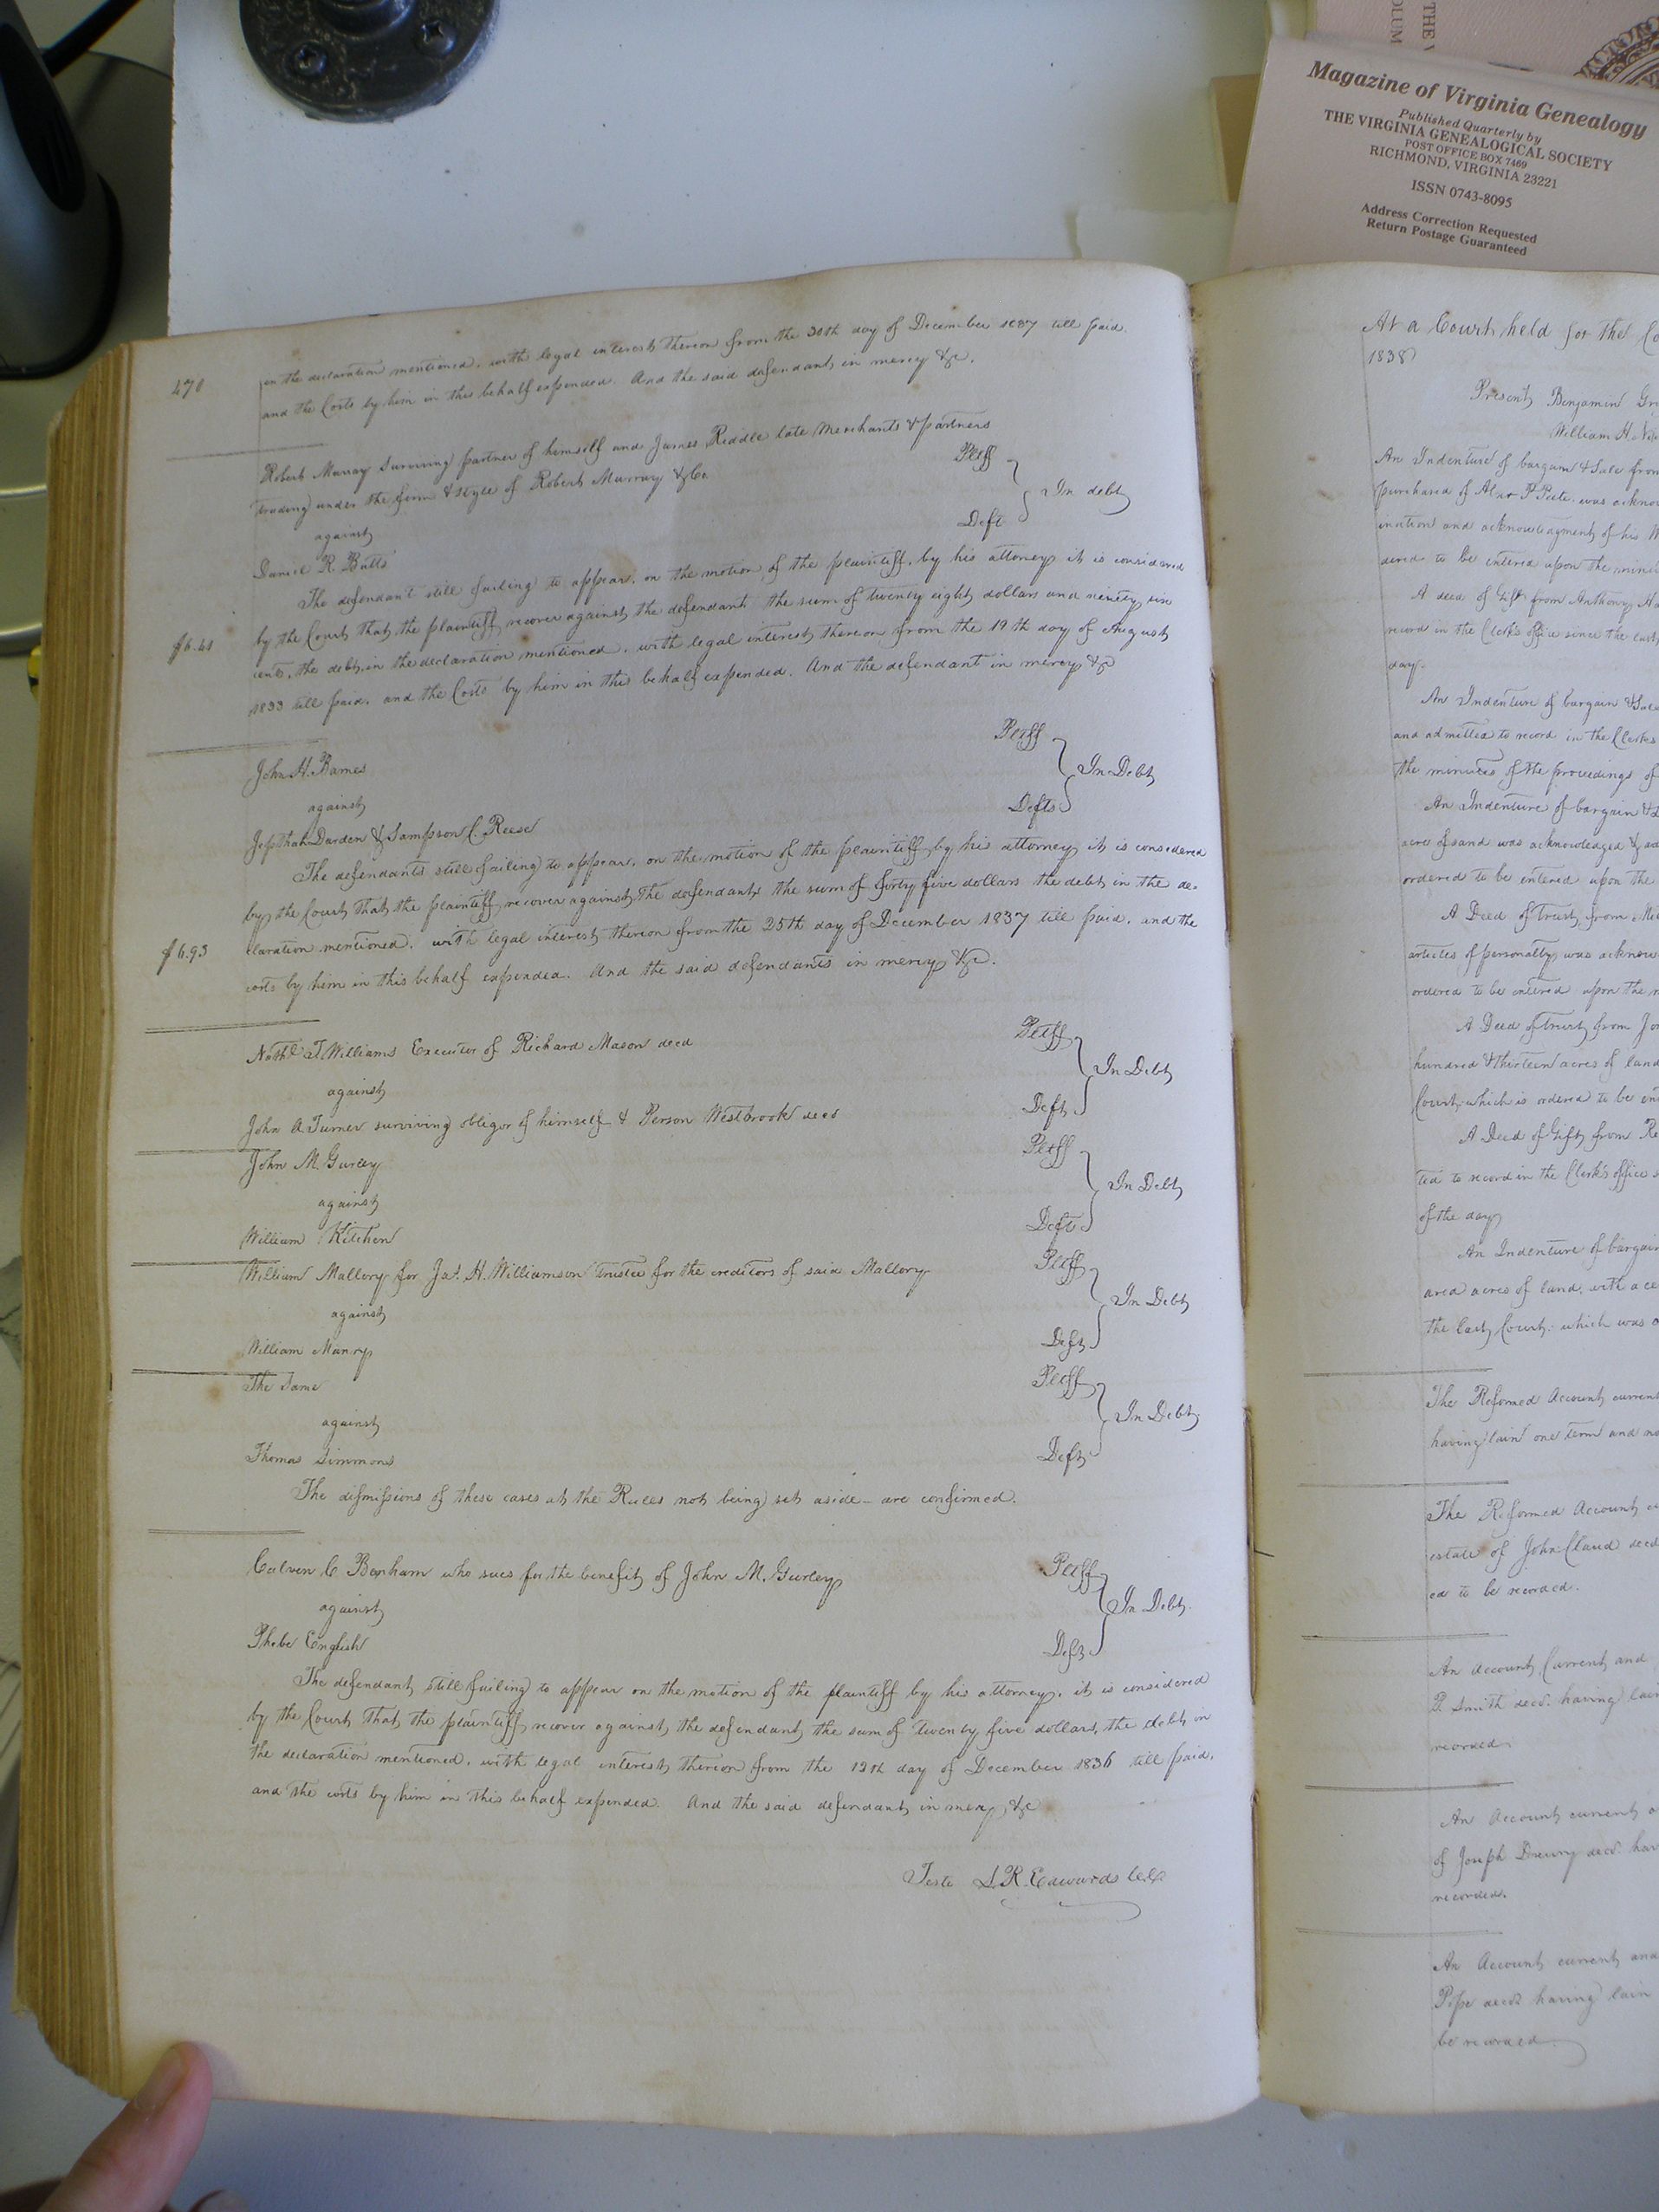 THE V
OLUM
Magazine of Virginia Genealogy
Published Quarterly by
THE VIRGINIA GENEALOGICAL SOCIETY
POST OFFICE BOX 7469
RICHMOND, VIRGINIA 23221
ISSN 0743-8095
Address Correction Requested
Return Postage Guaranteed
270
in the declaration mentioned, with legal interest thereon from the 30th day of December 1837 till paid.
and the Costs by him in this behalf expended. And the said defendants in mercy &c.
Robert Murray Surviving partner of himself and James Riddle late Merchants & partners
trading under the firm & style of Robert Murray & Co. Pltff
against In debt
Daniel R. Butts Deft
The defendant still failing to appear, on the motion of the plaintiff, by his attorney it is considered
by the Court that the plaintiff recover against the defendant the sum of twenty eight dollars and ninety six
cents, the debt in the declaration mentioned, with legal interest thereon from the 19th day of August
1833 till paid, and the Costs by him in this behalf expended. And the defendant in mercy &c
John H. Barnes Pltff
against In Debt
Jepthah Darden & Sampson C. Reese Defts
The defendants still failing to appear, on the motion of the plaintiff by his attorney it is considered
by the Court that the plaintiff recover against the defendants the sum of forty five dollars the debt in the de-
claration mentioned, with legal interest thereon from the 25th day of December 1837 till paid, and the
$6.93
costs by him in this behalf expended. And the said defendants in mercy &c.
Nathl T. Williams Executor of Richard Mason decd Pltff
against In Debt
John A. Turner surviving obligor of himself & Person Westbrook decd Deft
John M. Gurley Pltff
against In Debt
William Kitchen Deft
William Mallory for Jas. H. Williamson trustee for the creditors of said Mallory Pltff
against In Debt
William Manry Deft
The Same Pltff
against In Debt
Thomas Simmons Deft
The dismissions of these cases at the Rules not being set aside - are confirmed.
Calven C Bonham who sues for the benefit of John M. Gurley Pltff
against In Debt.
Phebe English Deft
The defendant still failing to appear on the motion of the plaintiff by his attorney, it is considered
by the Court that the plaintiff recover against the defendant the sum of twenty five dollars, the debt in
the declaration mentioned, with legal interest thereon from the 12th day of December 1836 till paid,
and the costs by him in this behalf expended. And the said defendant in mercy &c
Teste L. R. Edwards
At a Court held for the Co
1838
Present Benjamin Gr
William H. Ni
An Indenture of bargain & Sale from
purchased of P Peete was acknow
ination and acknowledgment of his W
dered to be entered upon the minu
A deed of Gift from Anthony Ha
record in the Clerk's office since the last
day.
An Indenture of bargain & Sale
and admitted to record in the Clerks
the minutes of the proceedings of
An Indenture of bargain & S
acres of land was acknowledged & ad
ordered to be entered upon the
A Deed of trust from Mi
articles of personalty was acknow
ordered to be entered upon the m
A Deed of trust from Jo
hundred & thirteen acres of land
Court, which is ordered to be en
A Deed of Gift from Re
ted to record in the Clerk's office s
of the day
An Indenture of bargain
ared acres of land, with a ce
the last Court, which was o
The Reformed Account current
having lain one term and no
The Reformed Account cu
estate of John Claud decd
ed to be recorded.
An account Current and
Smith decd. having lain
recorded
An Account current a
of Joseph Drewry decd. hav
recorded.
An Account current and
Pope decd. having lain
be recorded